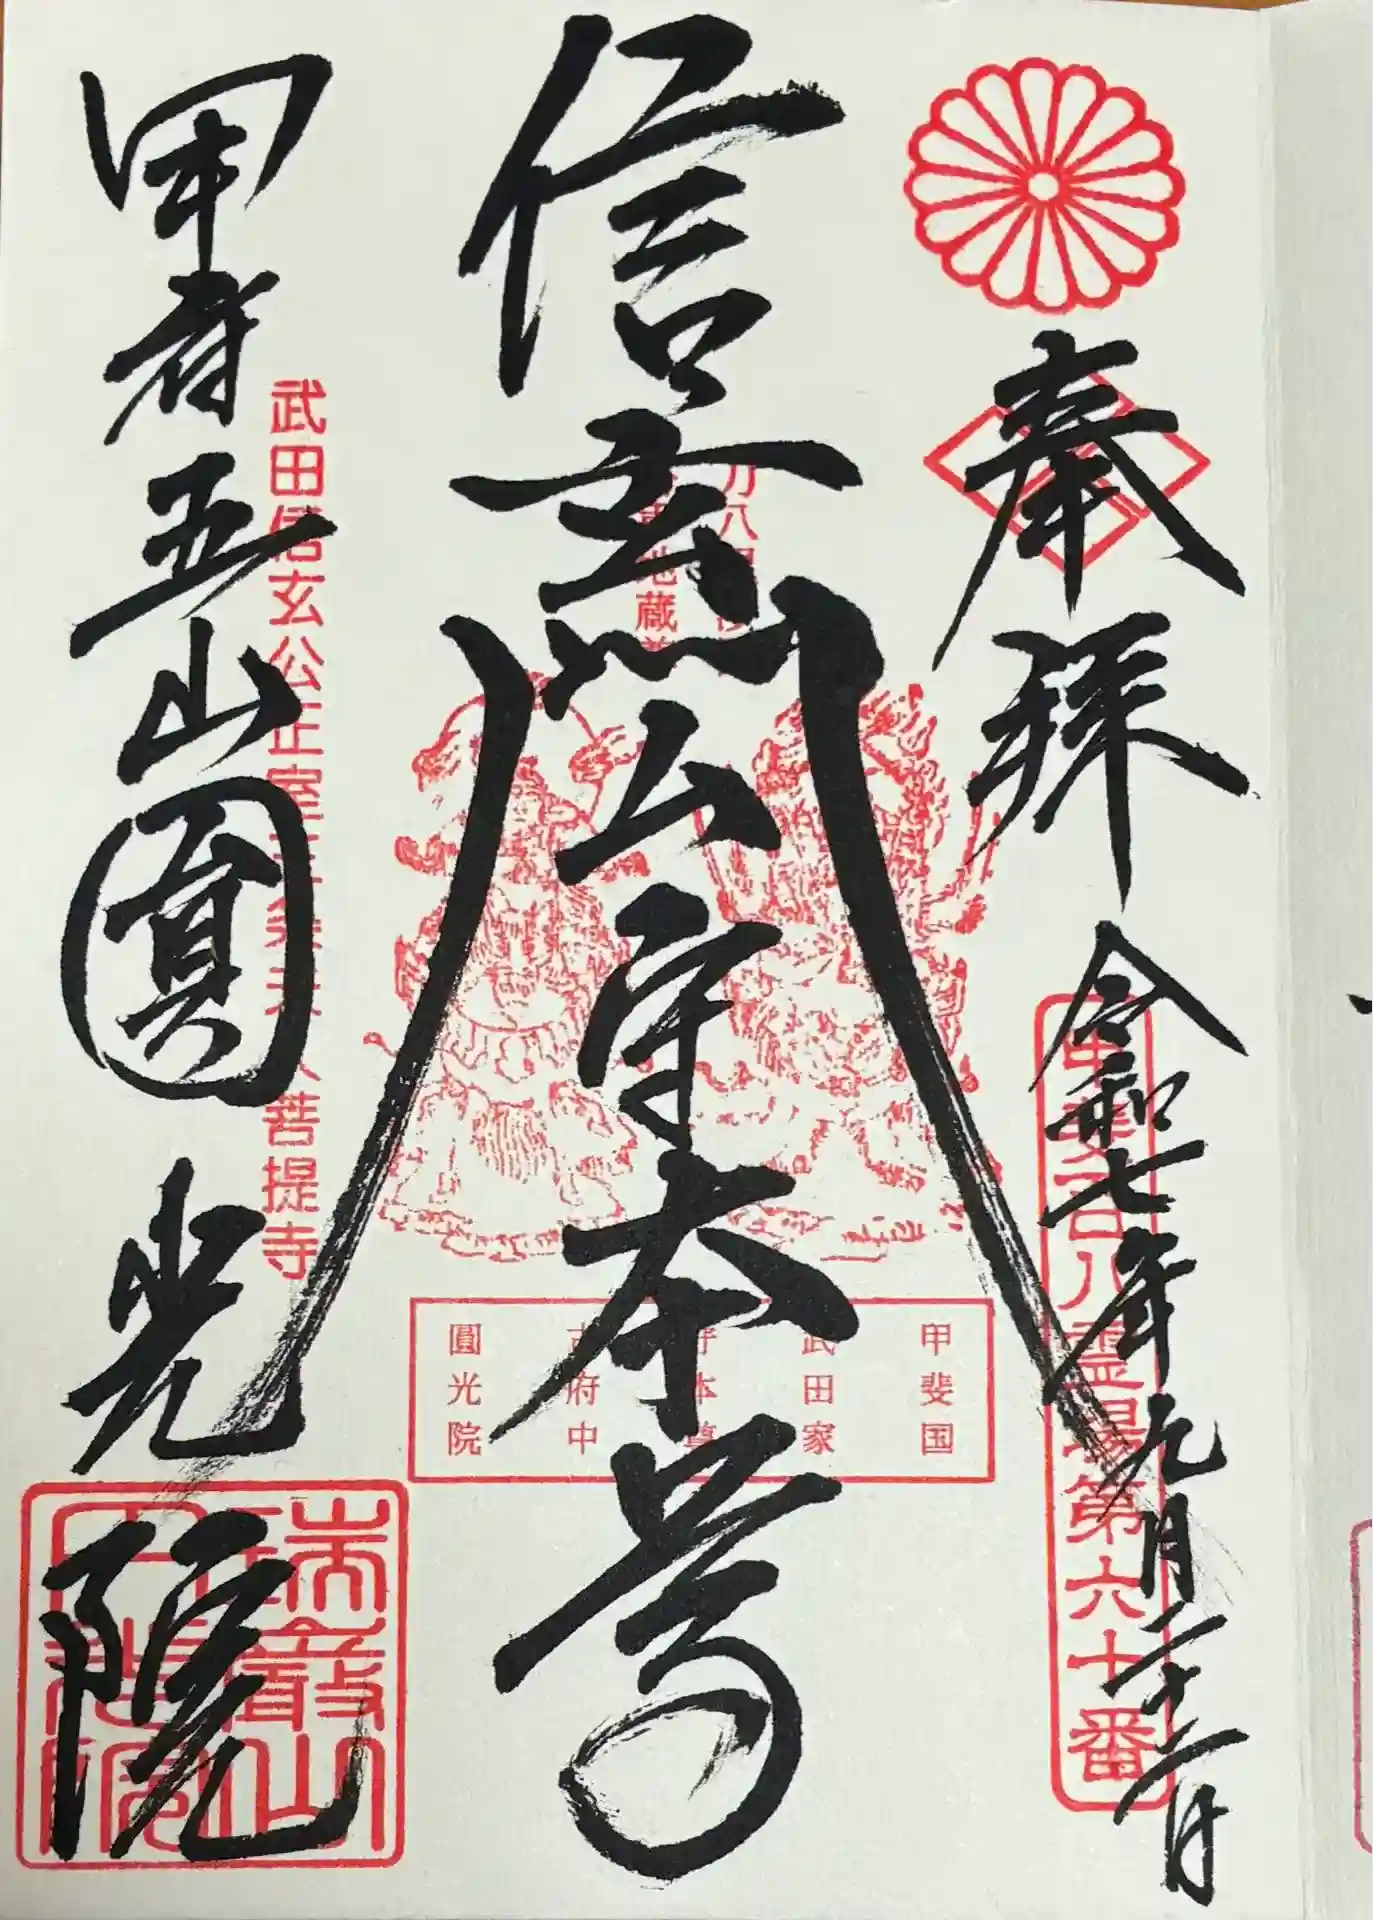 奉拝
令和七年九月二十二日
甲斐百八霊場第六十番
信玄公守本尊
甲斐国
武田家
守本尊
古府中
圓光院
武田信玄公正室三条夫人菩提寺
甲府五山圓光院
瑞巌山
圓光院